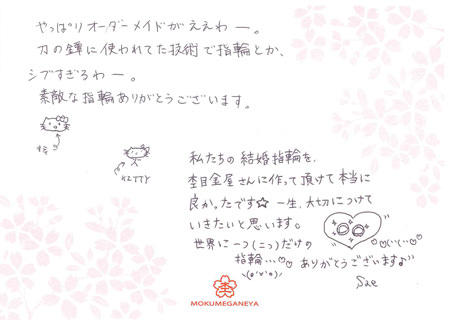 やっぱりオーダーメイドがええわー。
刀の鐔に使われてた技術で指輪とか、
シブすぎるわー。
素敵な指輪ありがとうございます。
KITTY
私たちの結婚指輪を、
杢目金屋さんに作って頂けて本当に
良かったです☆ 一生、大切につけて
いきたいと思います。
世界に一つ(二つ)だけの
指輪…♡♡
ありがとうございます♪”
Sae
MOKUMEGANEYA